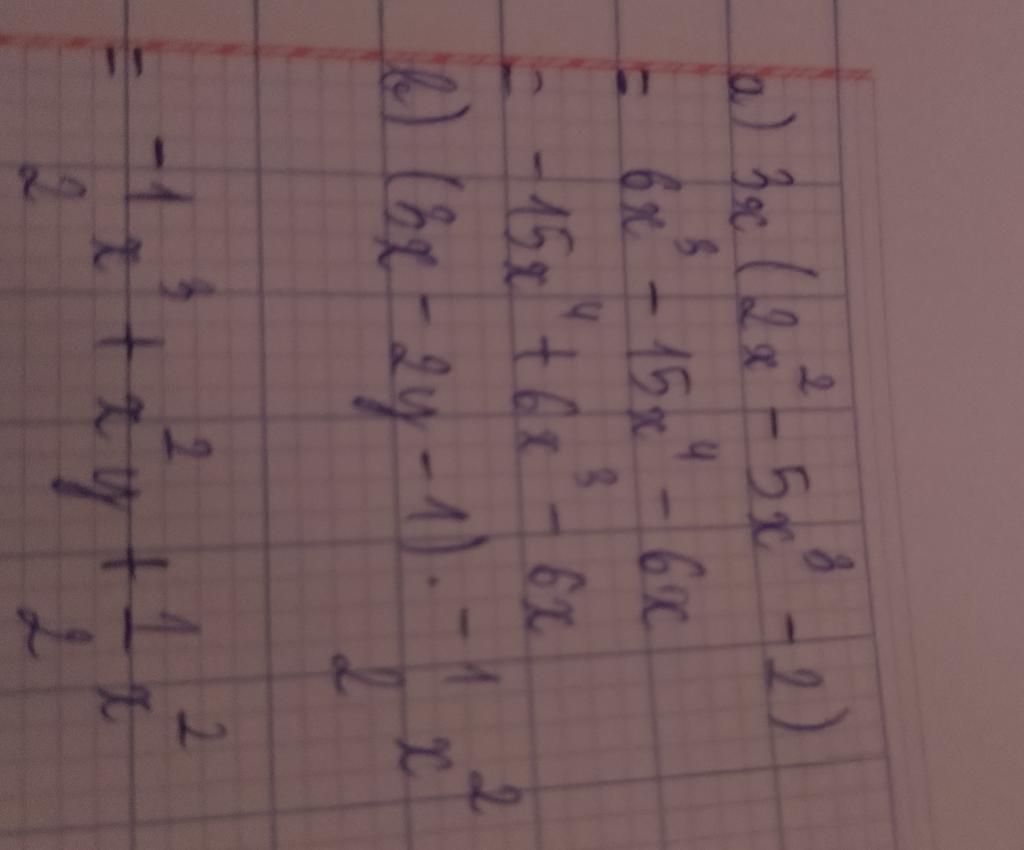 a) 3x (2x² - 5x³ - 2)
= 6x³ - 15x⁴ - 6x
= -15x⁴ + 6x³ - 6x
b) (3x - 2y - 1) · -1/2 x²
= -1/2 x³ + x²y + 1/2 x²